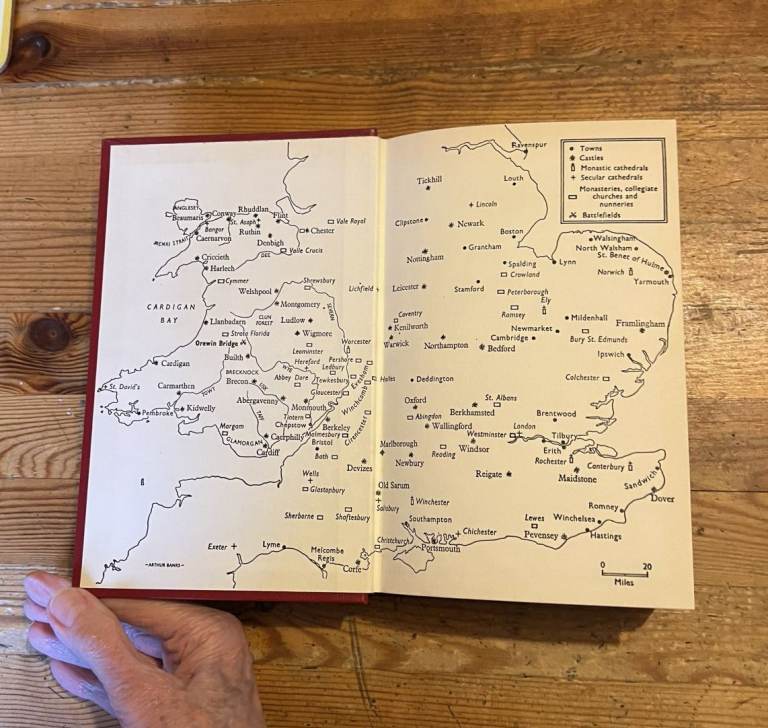 ANGLESEY
Beaumaris
Conway
Rhuddlan
Flint
St. Asaph
Bangor
Caernarvon
Ruthin
Chester
Vale Royal
MENAI STRAIT
Denbigh
DEE
Valle Crucis
Criccieth
Harlech
Cymmer
Shrewsbury
Welshpool
SEVERN
Lichfield
CARDIGAN
BAY
Montgomery
Llanbadarn
CLUN
FOREST
Ludlow
Strata Florida
Wigmore
Orewin Bridge
Leominster
Worcester
Builth
Hereford
Pershore
Cardigan
WYE
Ledbury
BRECKNOCK
Abbey Dore
Tewkesbury
Evesham
St. David's
Carmarthen
Brecon
USK
Gloucester
Winchcomb
Hales
TOWY
Abergavenny
Monmouth
Pembroke
Kidwelly
TAFF
Tintern
Berkeley
Cirencester
Chepstow
Margam
Caerphilly
Malmesbury
GLAMORGAN
Bristol
Cardiff
Bath
Devizes
Wells
Glastonbury
Old Sarum
Salisbury
Sherborne
Shaftesbury
Exeter
Lyme
Melcombe
Regis
Corfe
Christchurch
–ARTHUR BANKS–
Ravenspur
Tickhill
Louth
Lincoln
Clipstone
Newark
Boston
Grantham
Nottingham
Walsingham
North Walsham
St. Benet of Hulme
Spalding
Lynn
Crowland
Norwich
Yarmouth
Leicester
Stamford
Peterborough
Ely
Ramsey
Coventry
Kenilworth
Mildenhall
Framlingham
Newmarket
Warwick
Northampton
Cambridge
Bury St. Edmunds
Bedford
Ipswich
Deddington
Colchester
Oxford
St. Albans
Berkhamsted
Abingdon
Brentwood
Wallingford
London
Westminster
Tilbury
Marlborough
Windsor
Reading
Erith
Newbury
Rochester
Canterbury
Reigate
Maidstone
Sandwich
Dover
Winchester
Romney
Southampton
Lewes
Winchelsea
Chichester
Pevensey
Hastings
Portsmouth
Towns
Castles
Monastic cathedrals
Secular cathedrals
Monasteries, collegiate
churches and
nunneries
Battlefields
0 20
Miles